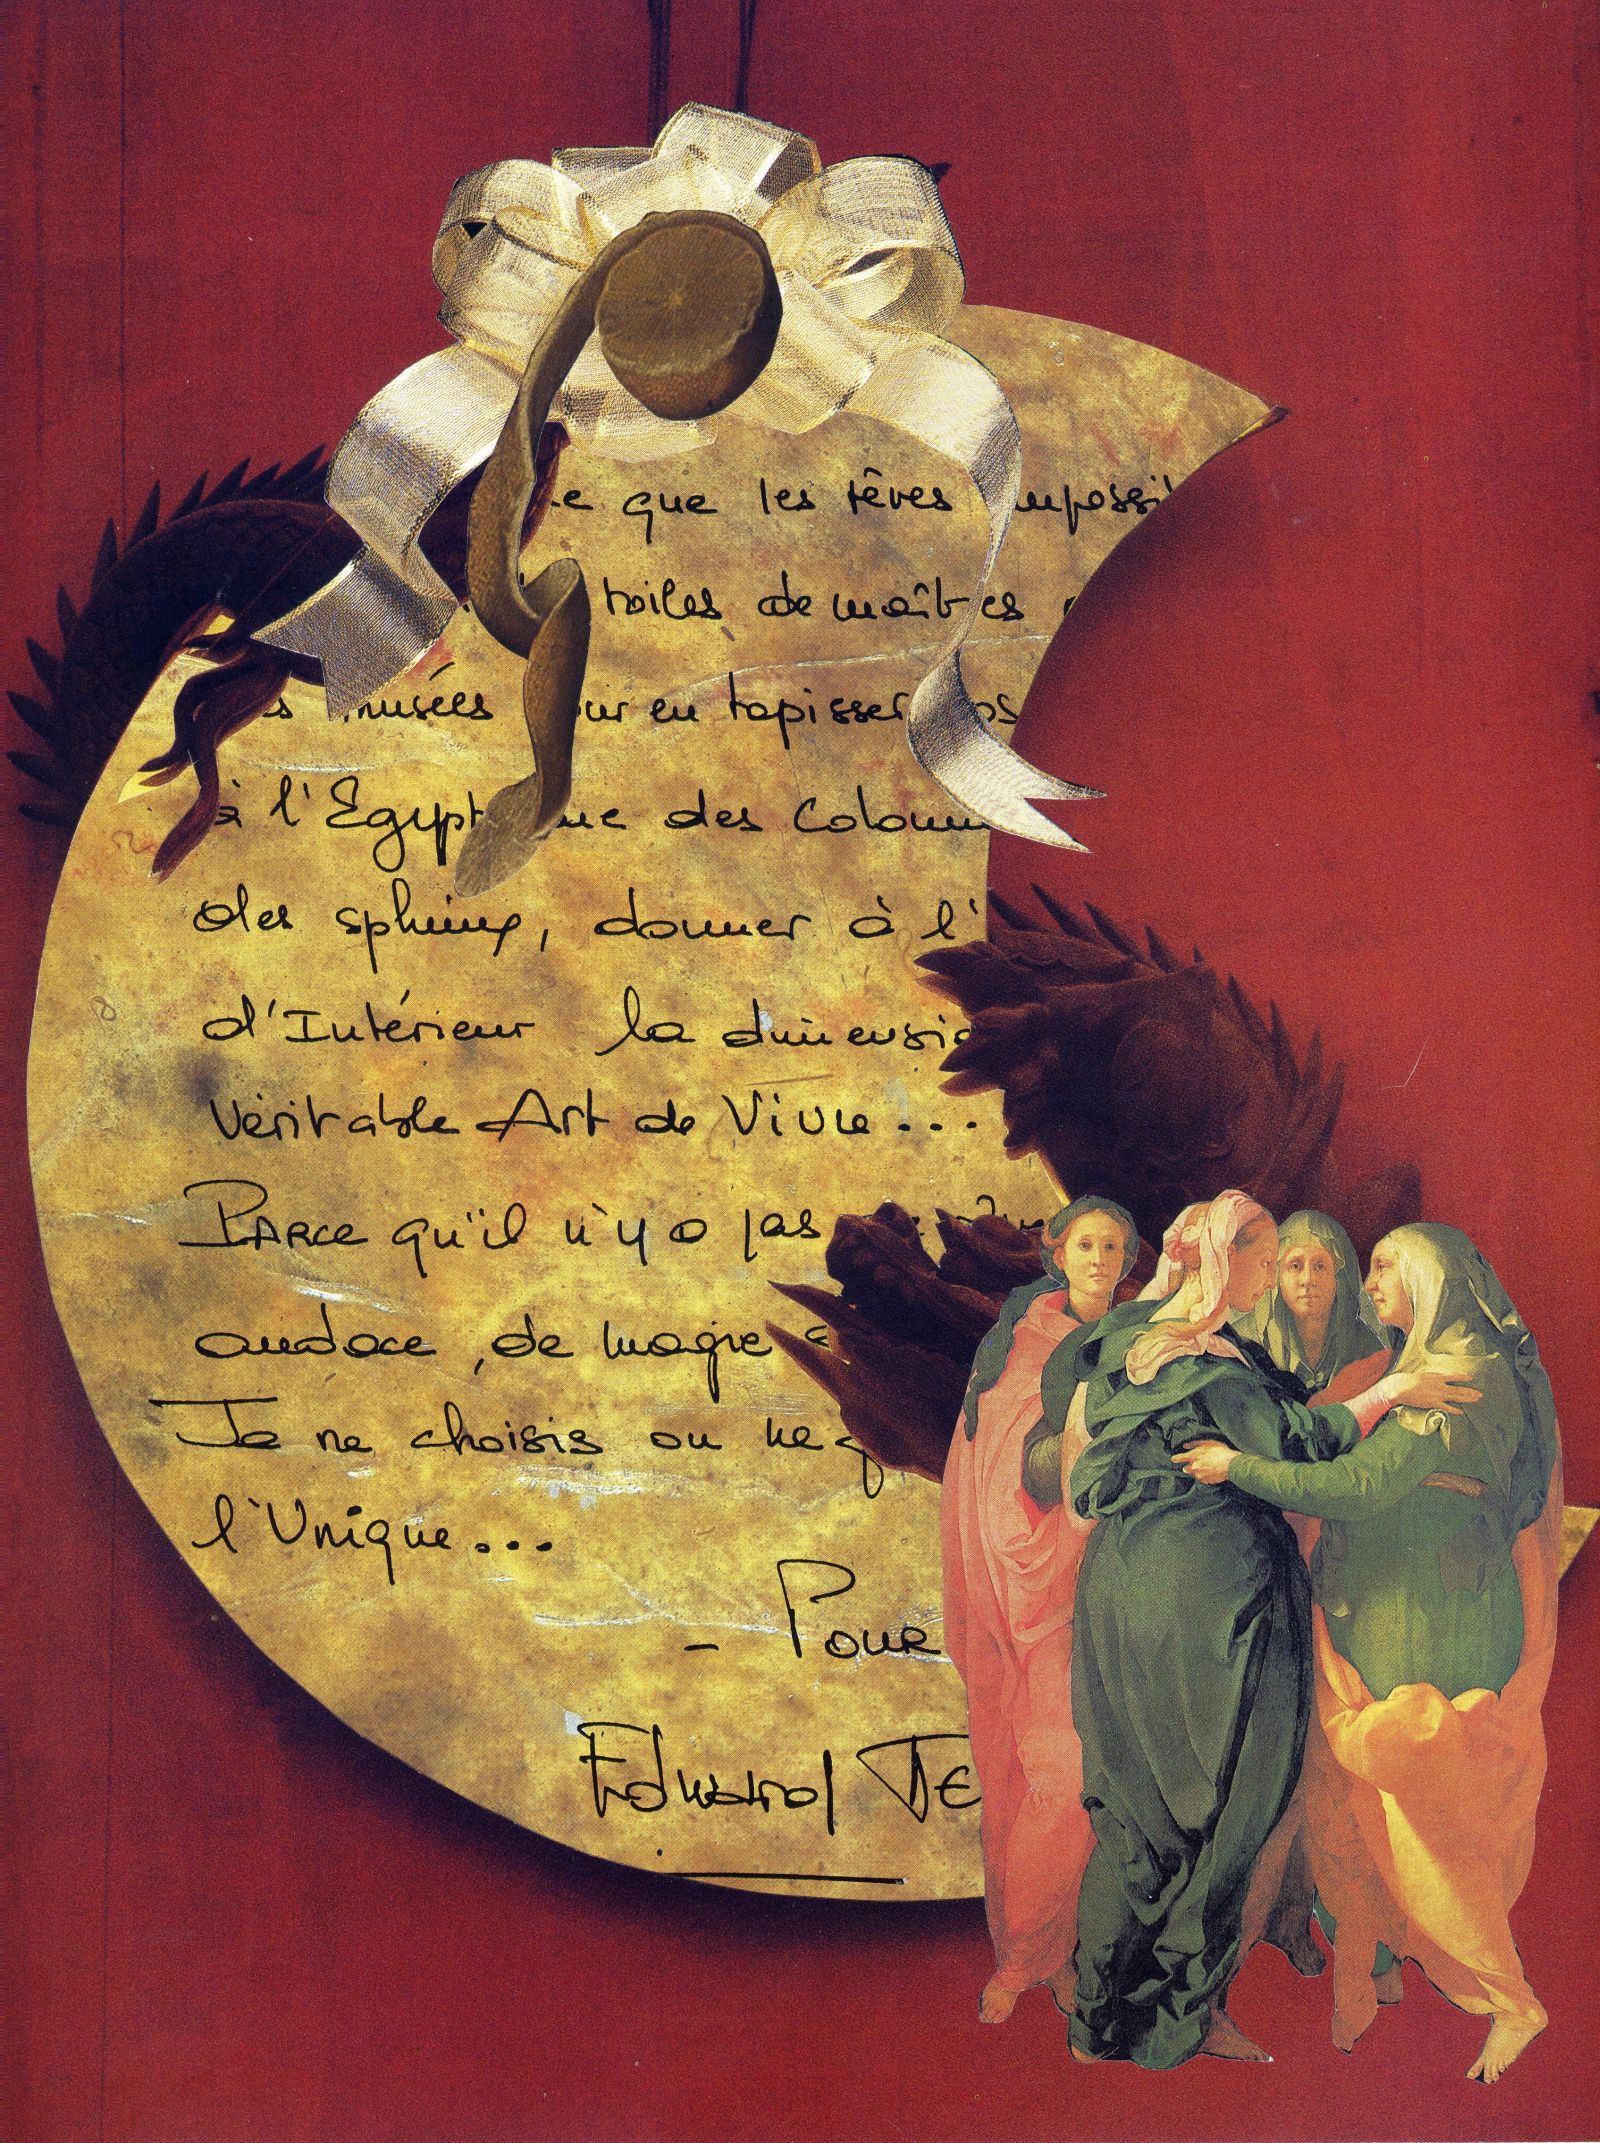 que les rêves impossi
toiles de maîtres
musées our en tapisser os
à l'Egypt ue des colonn
des sphinx, donner à l'
d'Intérieur la dimensio
Véritable Art de Vivre...
PARCE qu'il n'y a pas
audace, de magie
Je ne choisis ou ne q
l'Unique...
- POUR
Edward TE